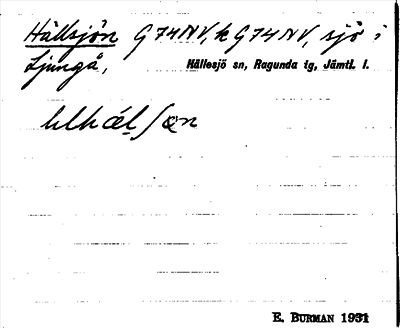 Hällsjön G74NV, k G74NV, sjö i
Ljungå,
Hällesjö sn, Ragunda tg, Jämtl. l.
E. BURMAN 1931